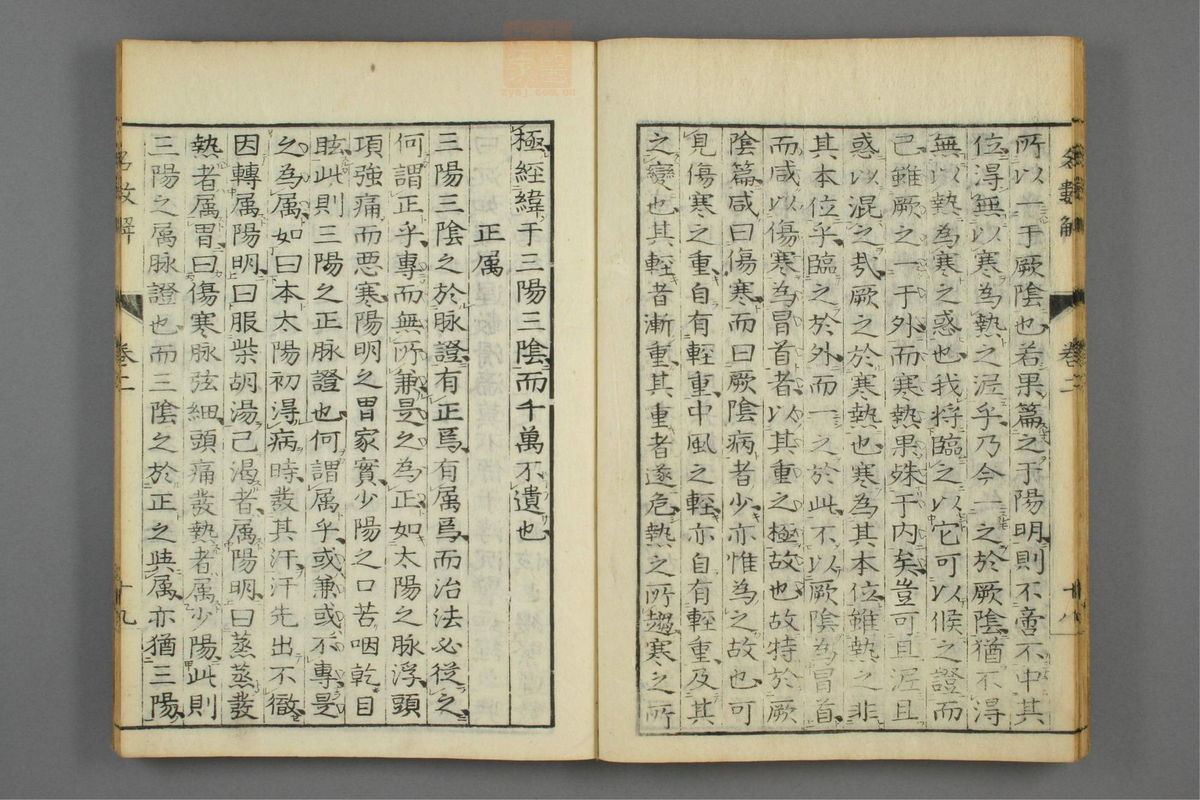 所以一于厥陰也若果篇之于陽明則不啻不中其
位得無以寒為熱之淫乎乃今一之於厥陰猶不得
無以熱為寒之惑也我将臨之以它可以候之證而
已雖厥之一于外而寒熱果殊于内矣豈可且淫且
惑以混之哉厥之於寒熱也寒為其本位雖熱之非
其本位乎臨之於外而一之於此不以厥陰為冒首
而咸以傷寒為冒首者以其重之極故也故特於厥
陰篇咸曰傷寒而曰厥陰病者少亦惟為之故也可
見傷寒之重自有輕重中風之輕亦自有輕重及其
之變也其輕者漸重其重者遂危熱之所趨寒之所
名數解 卷二 十八
極經緯于三陽三陰而千萬不遺也
正属
三陽三陰之於脉證有正焉有属焉而治法必從之
何謂正乎專而無所兼是之為正如太陽之脉浮頭
項強痛而悪寒陽明之胃家實少陽之口苦咽乾目
眩此則三陽之正脉證也何謂属乎或兼或不專是
之為属如曰本太陽初得病時発其汗汗先出不徹
因轉属陽明曰服柴胡湯已渇者属陽明曰蒸蒸發
熱者属胃曰傷寒脉弦細頭痛發熱者属少陽此則
三陽之属脉證也而三陰之於正之與属亦猶三陽
名数解 卷二 十九